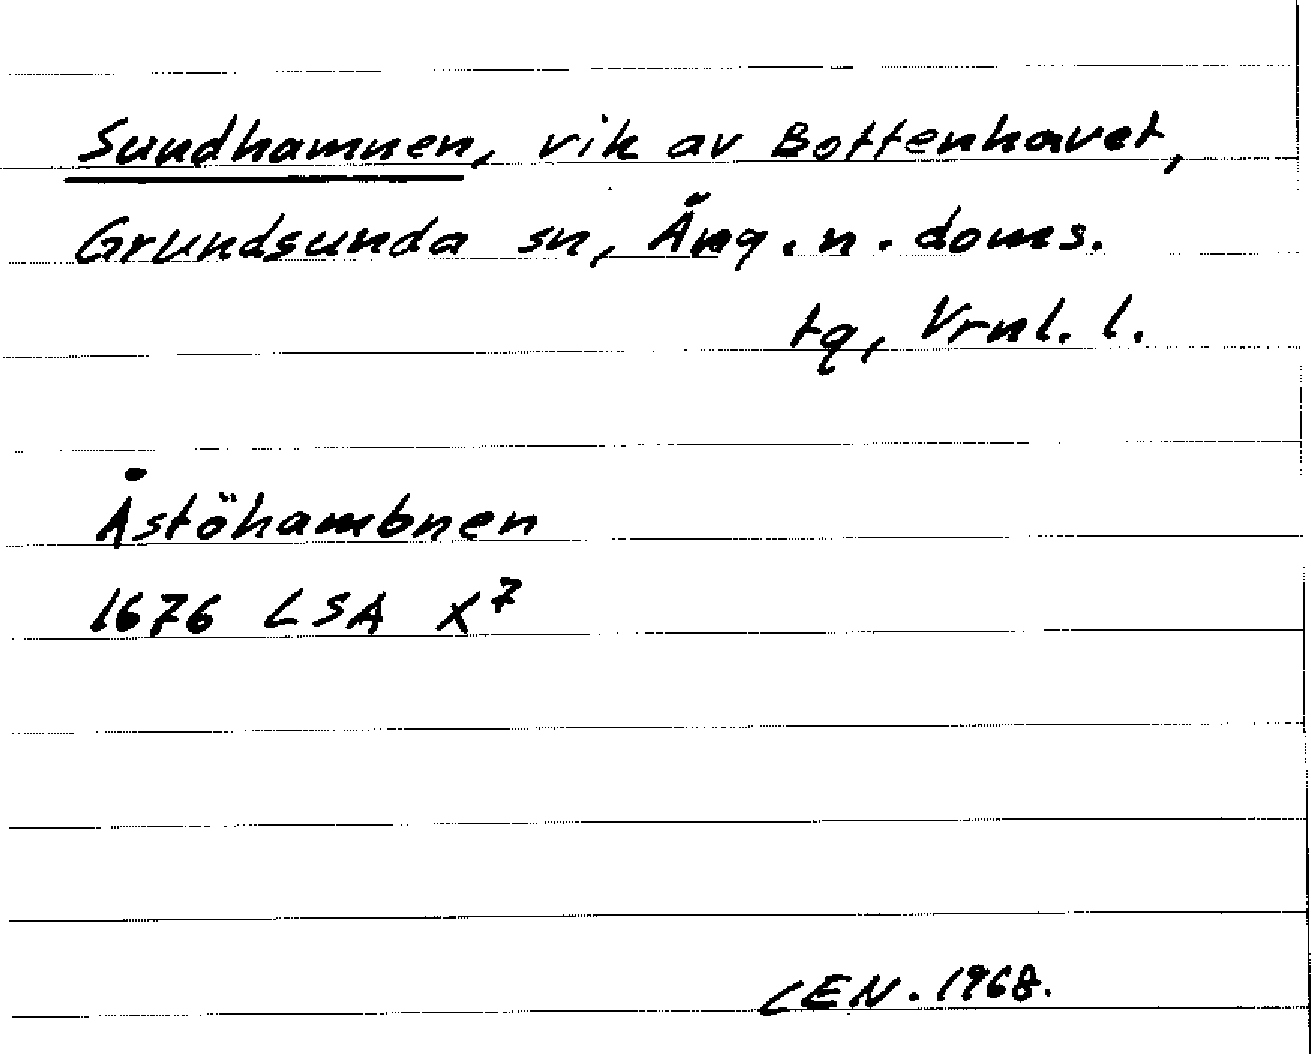 Sundhamnen, vik av Bottenhavet,
Grundsunda sn, Ång. n. doms.
tg, Vrnl. l.
Åstöhambnen
1676 LSA X⁷
CEN. 1968.